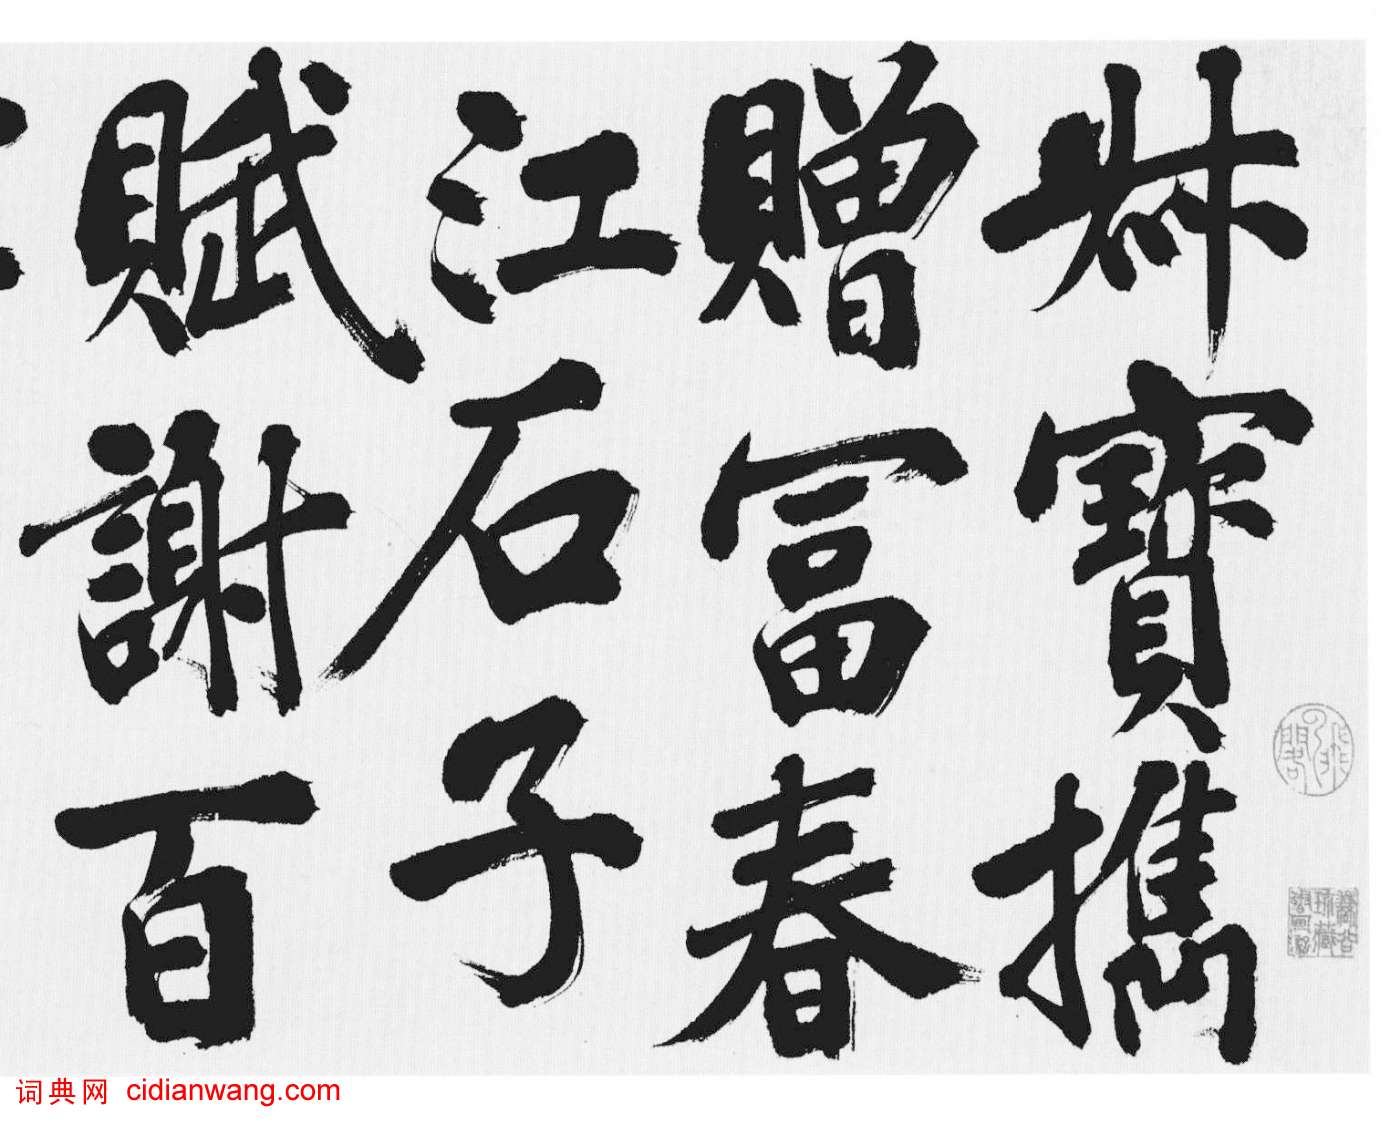 叔寶攜
贈富春
江石子
賦謝百
词典网 cidianwang.com